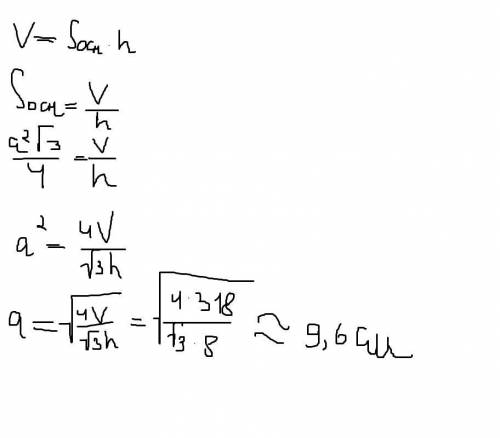 V = Sосн · h
Sосн = V/h
a²√3/4 = V/h
a² = 4V/√3h
a = √(4V/√3h) = √(4·318/√3·8) ≈ 9,6 см